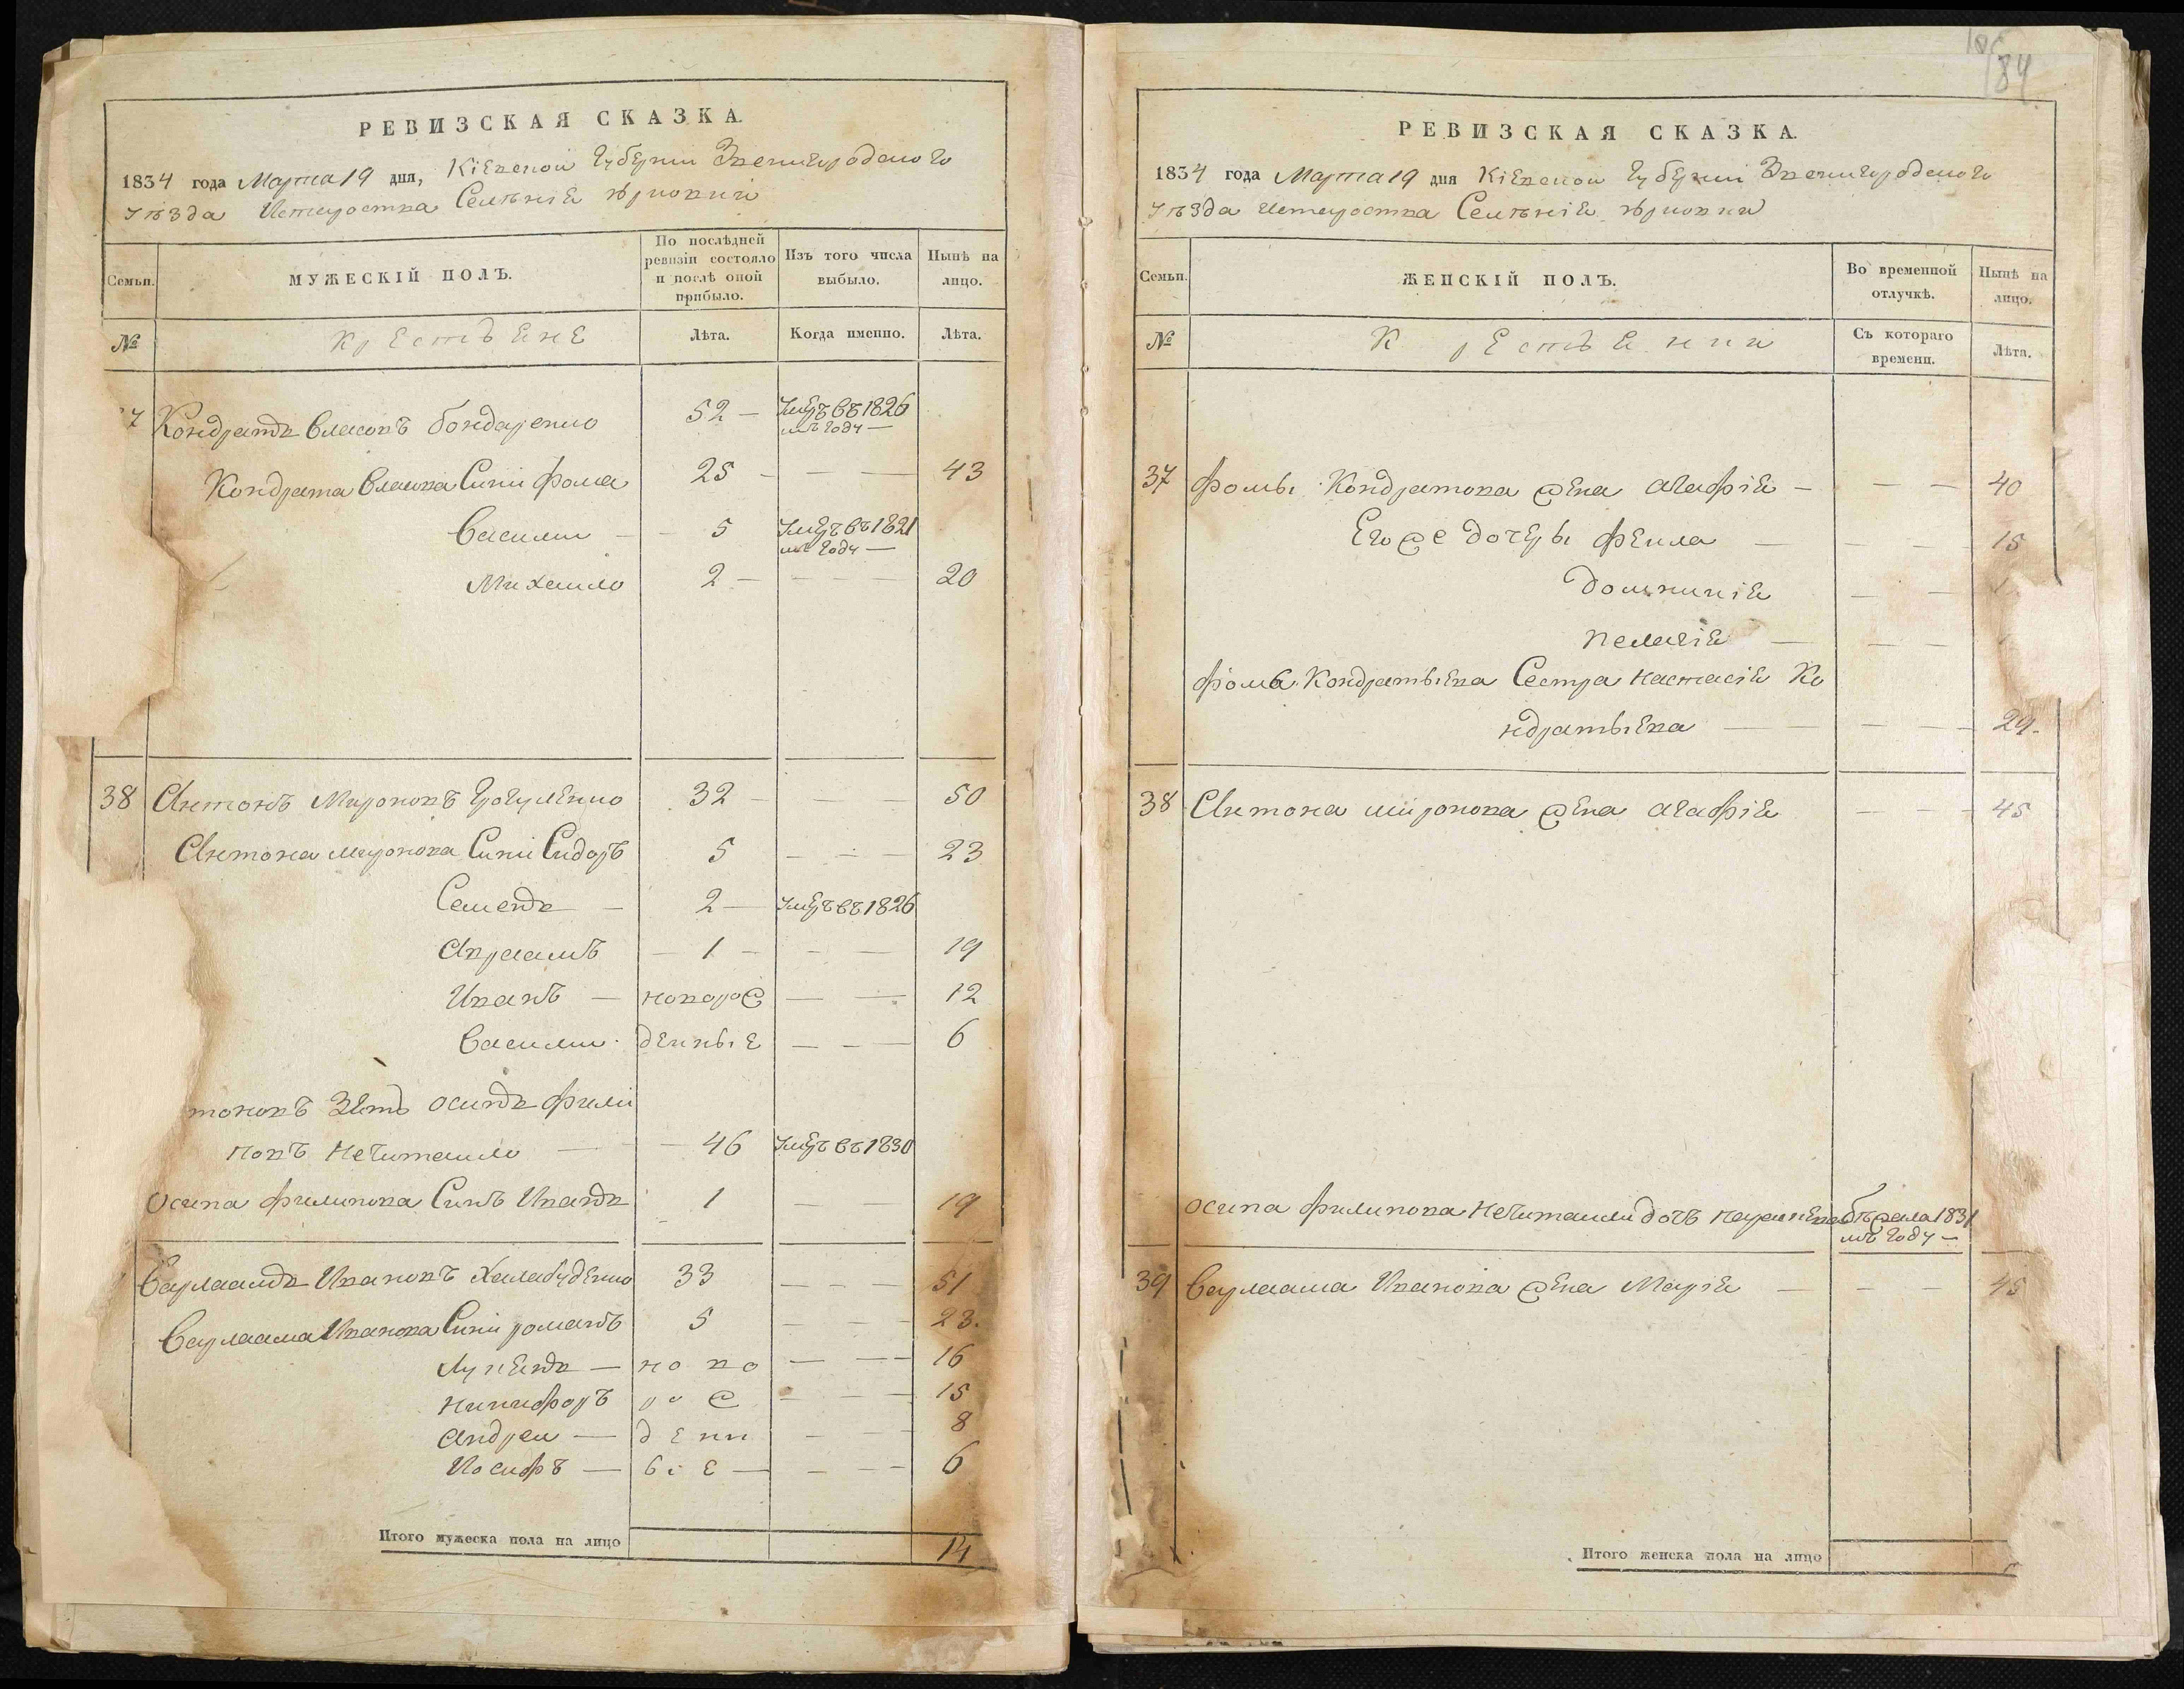 РЕВИЗСКАЯ СКАЗКА.
1834 года Марта 19 дня, Кіевской губернии Звенигородского
уѣзда Селѣніе
Семьи.
МУЖЕСКІЙ ПОЛЪ.
По послѣдней ревизіи состояло и послѣ оной прибыло.
Изъ того числа выбыло.
Нынѣ на лицо.
№
крестьяне
Лѣта.
Когда именно.
Лѣта.
7 Кондратъ Власовъ бондаренко 52 — умеръ въ 1826
мъ году —
Кондрата Власова Сини фома 25 — — — 43
Василии — 5 умеръ въ 1821
мъ году —
Михаило 2 — — — 20
38 Антонъ Мироновъ 32 — — — 50
Антона миронова Сини Сидоръ 5 — — — 23
Семенъ — 2 — умеръ въ 1826
Авраамъ — 1 — — — 19
Иванъ — новорож — — 12
Василии денные — — — 6
тоновъ зять осипъ фили
повъ нечитаило — 46 умеръ въ 1830
осипа филипова Синъ Иванъ 1 — — 19
Варлаамъ Ивановъ Халабуденко 33 — — — 51
Варлаама Иванова Сини романъ 5 — — — 23.
— но во — — — 16
никифоръ ро ж — — — 15
андреи — денн — — 8
Иосифъ — біе — — — — 6
Итого мужеска пола на лицо 14
84
РЕВИЗСКАЯ СКАЗКА.
1834 года Марта 19 дня Кіевскои губерніи Звенигородского
уѣзда Селѣніе
Семьи.
ЖЕНСКІЙ ПОЛЪ.
Во временной отлучкѣ.
Нынѣ на лицо.
№
крестьянки
Съ котораго времени.
Лѣта.
37 фомы Кондратова жена агафія — — — 40
Его же дочеры фекла — — — — 15
домникія — —
пелагія — — —
фомы Кондратьева Сестра настасія Ко
ндратьева — — — — — 29.
38 Антона миронова жена агафія — — — 45
осипа филипова нечитаили дочъ бѣжала 1831
мъ году —
39 Варлаама Иванова жена Марія — — — 45
Итого женска пола на лицо